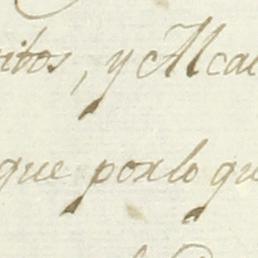 itos, y Alcal
que por lo qu